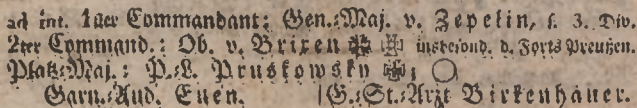 ad int. 1ster Commandant: Gen.-Maj. v. Zepelin, s. 3. Div.
2ter Command.: Ob. v. Brixen insbesond. d. Forts Preußen.
Platz-Maj.: P.-L. Pruskowsky
Garn.-Aud. Euen. G.-St.-Arzt Birkenhäuer.